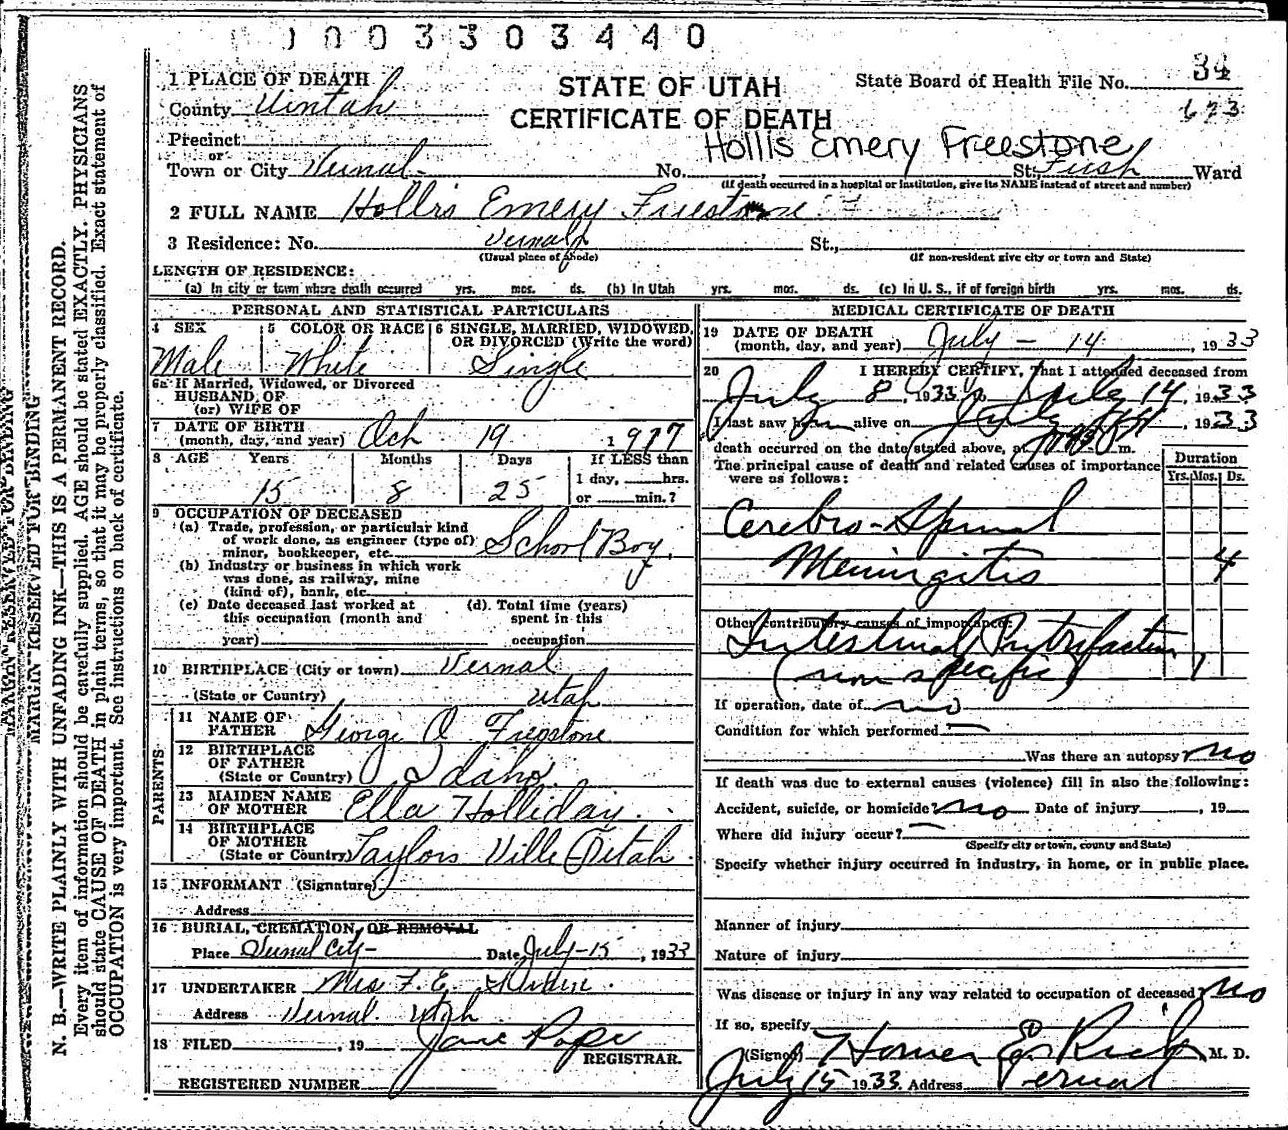 1003303440
1 PLACE OF DEATH
County Uintah
Precinct
or
Town or City Vernal
STATE OF UTAH
CERTIFICATE OF DEATH
State Board of Health File No. 34
673
Hollis Emery Freestone
No. St., Ward
(If death occurred in a hospital or institution, give its NAME instead of street and number)
2 FULL NAME Hollis Emery Freestone
3 Residence: No. Vernal St.,
(Usual place of abode) (If non-resident give city or town and State)
LENGTH OF RESIDENCE:
(a) In city or town where death occurred yrs. mos. ds. (b) In Utah yrs. mos. ds. (c) In U. S., if of foreign birth yrs. mos. ds.
PERSONAL AND STATISTICAL PARTICULARS
4 SEX 5 COLOR OR RACE 6 SINGLE, MARRIED, WIDOWED, OR DIVORCED (Write the word)
Male White Single
6a If Married, Widowed, or Divorced
HUSBAND OF
(or) WIFE OF
7 DATE OF BIRTH
(month, day, and year) Oct 19 1917
8 AGE Years Months Days If LESS than
1 day, hrs.
15 8 25 or min.?
9 OCCUPATION OF DECEASED
(a) Trade, profession, or particular kind
of work done, as engineer (type of)
minor, bookkeeper, etc. School Boy
(b) Industry or business in which work
was done, as railway, mine
(kind of), bank, etc.
(c) Date deceased last worked at (d). Total time (years)
this occupation (month and spent in this
year) occupation
10 BIRTHPLACE (City or town) Vernal
(State or Country) Utah
PARENTS
11 NAME OF
FATHER George O Freestone
12 BIRTHPLACE
OF FATHER
(State or Country) Idaho
13 MAIDEN NAME
OF MOTHER Ella Holliday
14 BIRTHPLACE
OF MOTHER
(State or Country) Taylors Ville Utah
15 INFORMANT (Signature)
Address
16 BURIAL, CREMATION, OR REMOVAL
Place Vernal City Date July-15, 1933
17 UNDERTAKER Mrs F. E.
Address Vernal Utah
18 FILED , 19 Jane Pope
REGISTRAR.
REGISTERED NUMBER
MEDICAL CERTIFICATE OF DEATH
19 DATE OF DEATH
(month, day, and year) July - 14, 1933
20 I HEREBY CERTIFY, That I attended deceased from
July 8, 1933, to July 14, 1933
I last saw him alive on July , 1933
death occurred on the date stated above, at m.
The principal cause of death and related causes of importance
were as follows:
Duration
Yrs. Mos. Ds.
Cerebro-Spinal
Meningitis 4
Other contributory causes of importance:
Intestinal Putrifaction
(non specific)
If operation, date of no
Condition for which performed —
Was there an autopsy no
If death was due to external causes (violence) fill in also the following:
Accident, suicide, or homicide? no Date of injury , 19
Where did injury occur? —
(Specify city or town, county and State)
Specify whether injury occurred in industry, in home, or in public place.
Manner of injury
Nature of injury
Was disease or injury in any way related to occupation of deceased? no
If so, specify
(Signed) Homer E. Rich M. D.
July 15 1933 Address Vernal
MARGIN RESERVED FOR BINDING
MARGIN RESERVED FOR BINDING
N. B.—WRITE PLAINLY WITH UNFADING INK—THIS IS A PERMANENT RECORD.
Every item of information should be carefully supplied. AGE should be stated EXACTLY. PHYSICIANS
should state CAUSE OF DEATH in plain terms, so that it may be properly classified. Exact statement of
OCCUPATION is very important. See instructions on back of certificate.